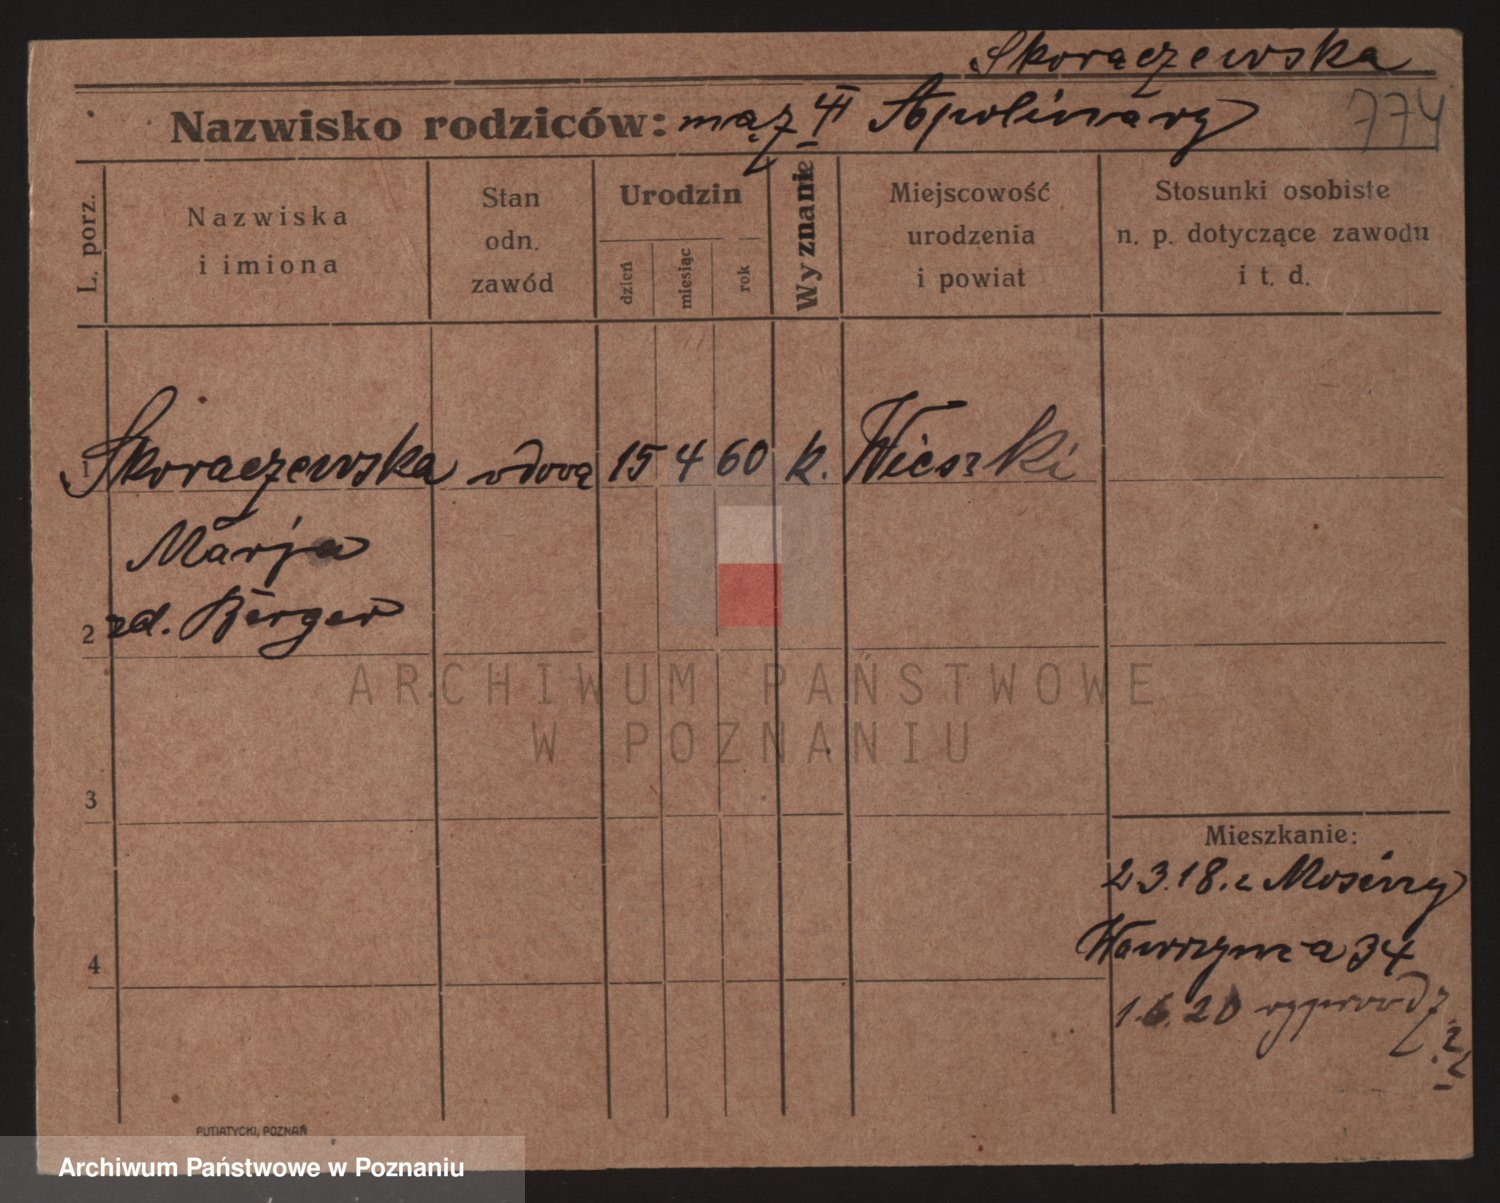 Skorączewska
Nazwisko rodziców: mąż II Apolinary 774
L. porz.
Nazwiska
i imiona
Stan
odn.
zawód
Urodzin
dzień
miesiąc
rok
Wyznanie
Miejscowość
urodzenia
i powiat
Stosunki osobiste
n. p. dotyczące zawodu
i t. d.
1 Skoraczewska wdową 15 4 60 k. Wieszki
Marja
2 zd. Berger
ARCHIWUM PAŃSTWOWE
W POZNANIU
3
Mieszkanie:
23.18. z Mosiny
Wawrzynca 34
4
1.6.20 wyprowadz
PUTIATYCKI, POZNAŃ
Archiwum Państwowe w Poznaniu